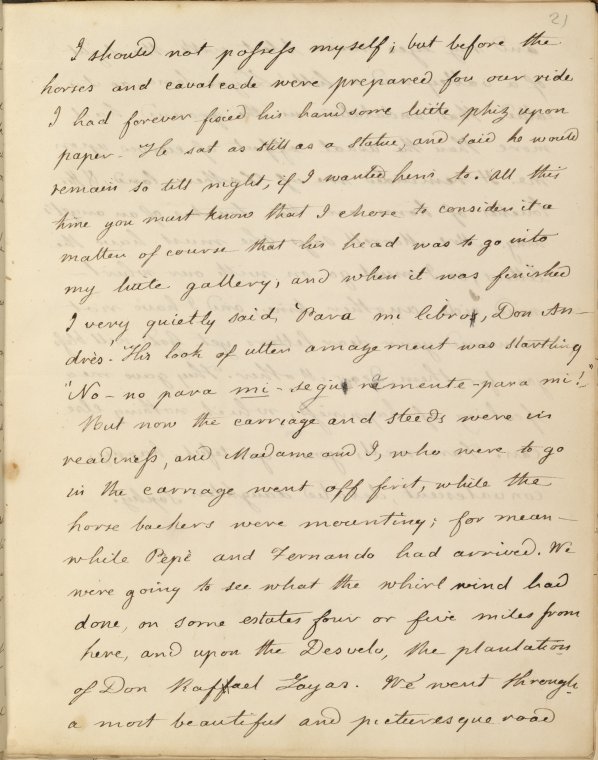 21
I should not possess myself; but before the
horses and cavalcade were prepared for our ride
I had forever fixed his handsome little phiz upon
paper. He sat as still as a statue, and said he would
remain so till night, if I wanted him to. All this
time you must know that I chose to consider it a
matter of course that his head was to go into
my little gallery, and when it was finished
I very quietly said, "Para mi libro, Don An-
drès." His look of utter amazement was startling
"No - no para mi - seguramente - para mi!"
But now the carriage and steeds were in
readiness, and Madame and I, who were to go
in the carriage went off first, while the
horse backers were mounting; for mean-
while Pepè and Fernando had arrived. We
were going to see what the whirl wind had
done, on some estates four or five miles from
here, and upon the Desvelo, the plantation
of Don Raffael Zayas. We went through
a most beautiful and picturesque road